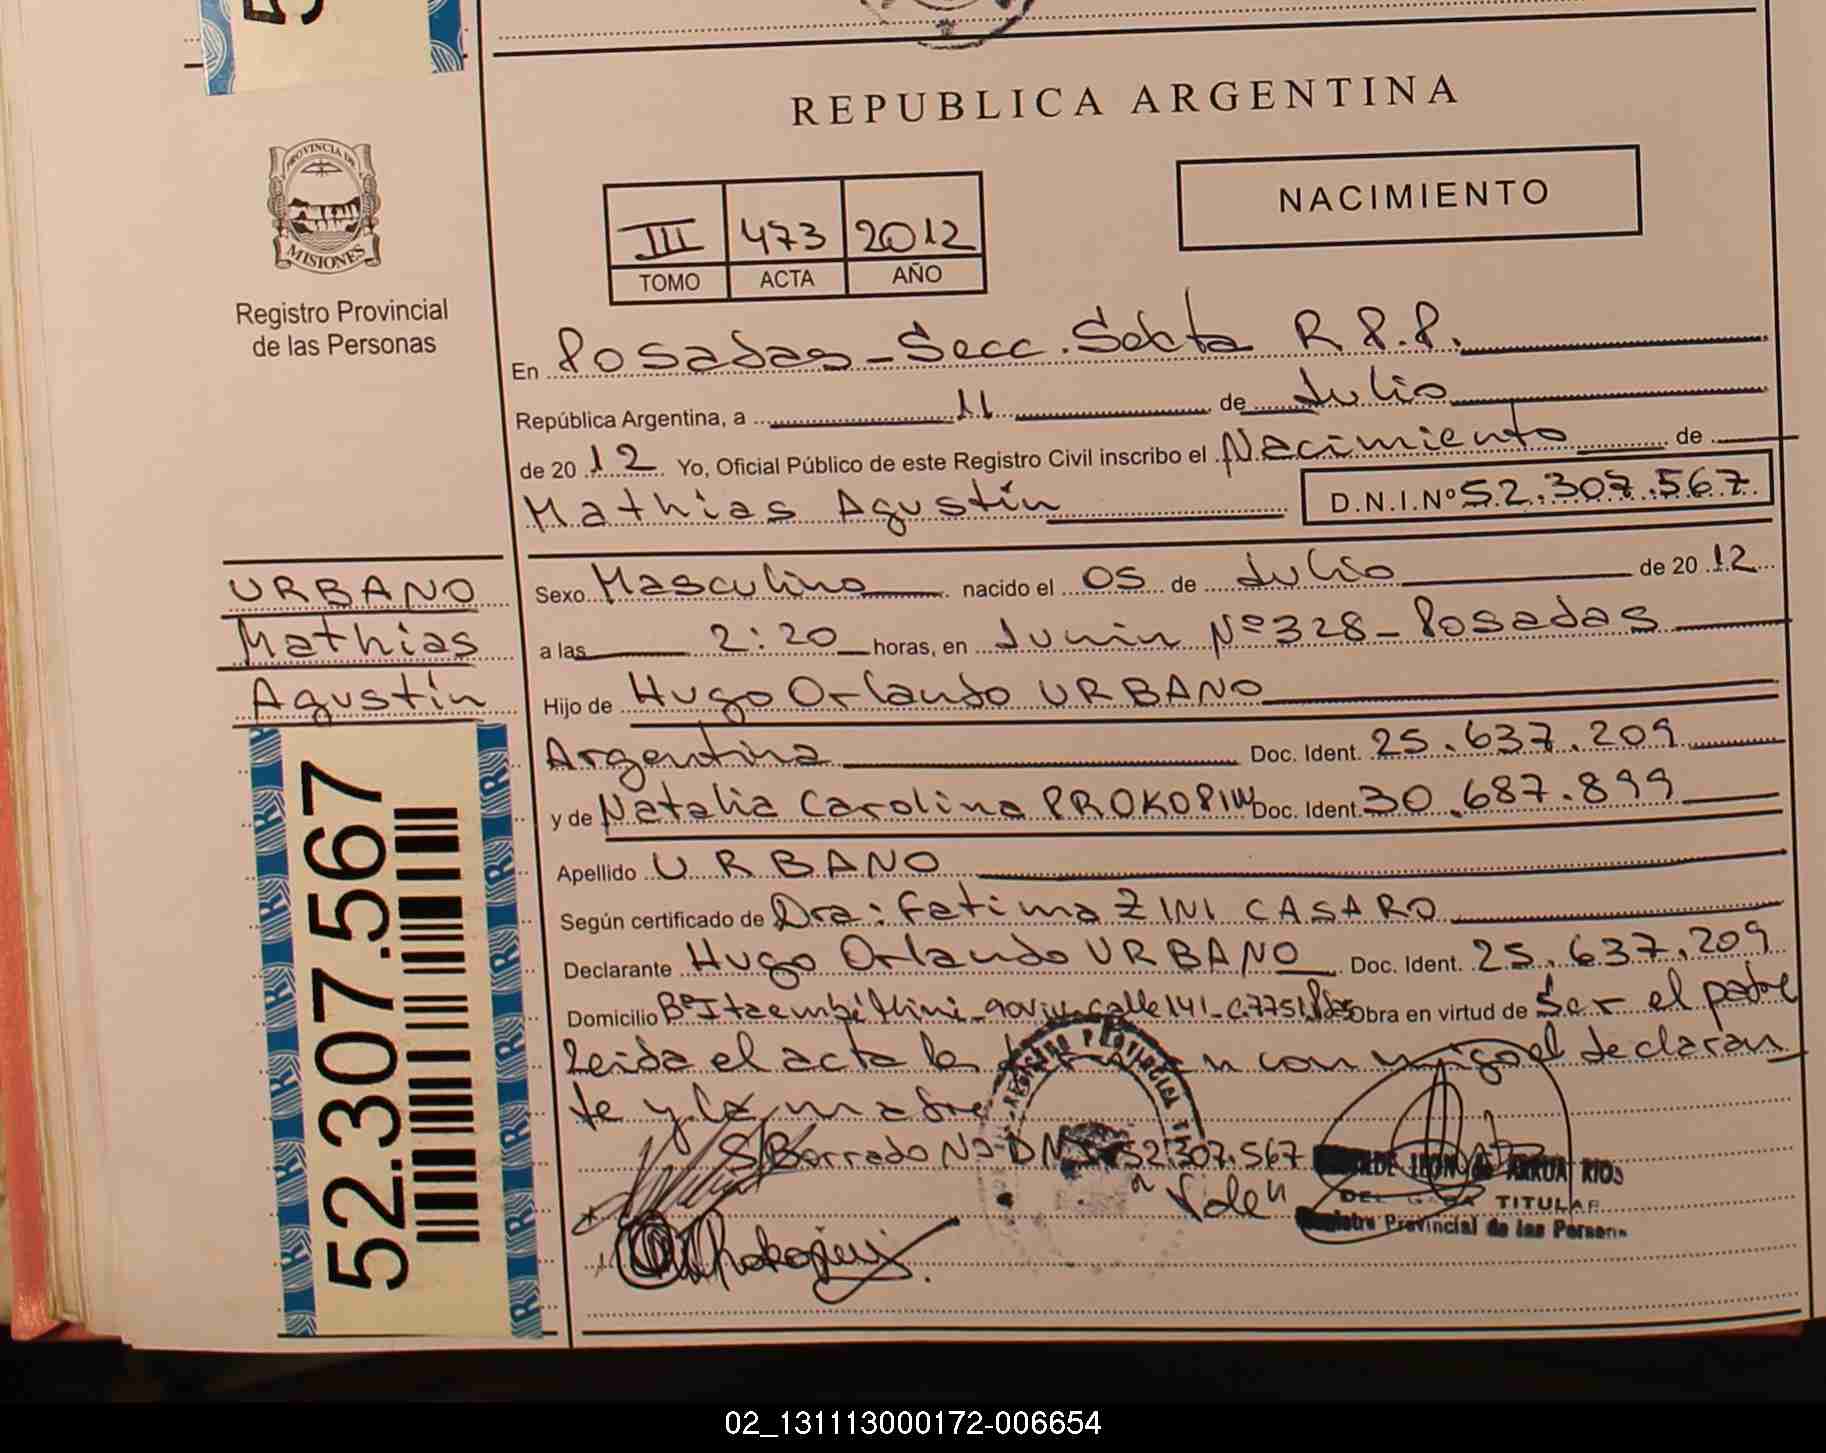 REPUBLICA ARGENTINA
NACIMIENTO
III 473 2012
TOMO ACTA AÑO
PROVINCIA DE
MISIONES
Registro Provincial
de las Personas
En Posadas - Secc. Sexta R.P.P.
República Argentina, a 11 de Julio
de 2012 Yo, Oficial Público de este Registro Civil inscribo el Nacimiento de
Mathias Agustín D.N.I.Nº 52.307.567
URBANO
Mathias
Agustín
Sexo Masculino nacido el 05 de Julio de 2012
a las 2:20 horas, en Junin Nº 328 - Posadas
Hijo de Hugo Orlando URBANO
Argentina Doc. Ident. 25.637.209
y de Natalia Carolina PROKOPIW Doc. Ident. 30.687.899
Apellido URBANO
Según certificado de Dra: Fatima ZINI CASARO
Declarante Hugo Orlando URBANO Doc. Ident. 25.637.209
Domicilio Bº Itaembé Mini - calle 141 - C.7751 Pdas Obra en virtud de Ser el padre
Leida el acta la conmigo el declaran
te y la madre
S/Borrado Nº DNI 52.307.567
Vale"
TITULAR
Registro Provincial de las Personas
REGISTRO PROVINCIAL
52.307.567
02_131113000172-006654